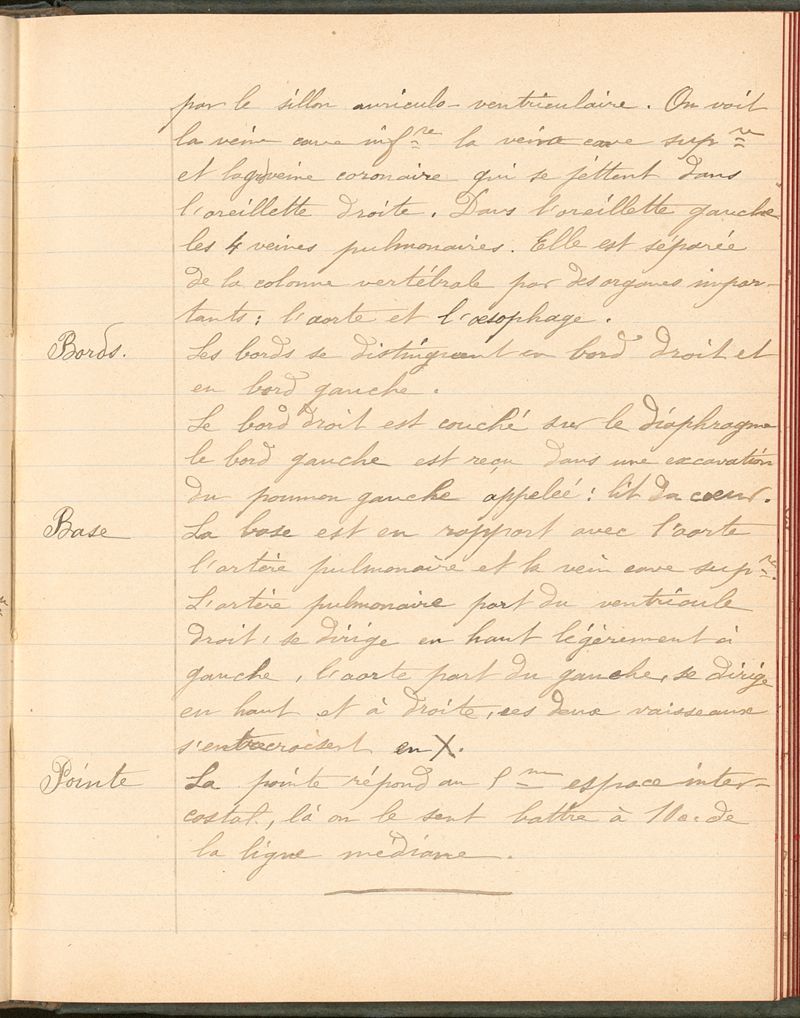 par le sillon auriculo-ventriculaire. On voit
la veine cave inf^re la veine cave sup^re
et la gde veine coronaire qui se jéttent dans
l'oreillette droite. Dans l'oreillette gauche
les 4 veines pulmonaires. Elle est séparée
de la colonne vertébrale par des organes impor-
tants: l'aorte et l'œsophage.
Bords. Les bords se distinguent en bord droit et
en bord gauche.
Le bord droit est couché sur le diaphragme
le bord gauche est reçu dans une excavation
du poumon gauche appeleé: lit du cœur.
Base La base est en rapport avec l'aorte
l'artère pulmonaire et la vein cave sup^re.
L'artère pulmonaire part du ventricule
droit, se dirige en haut légèrement à
gauche, l'aorte part du gauche, se dirige
en haut et à droite, ces deux vaisseaux
s'entrecroisent en X.
Pointe La pointe répond au 5^me espace inter-
costal, là on le sent battre à 10c. de
la ligne médiane.